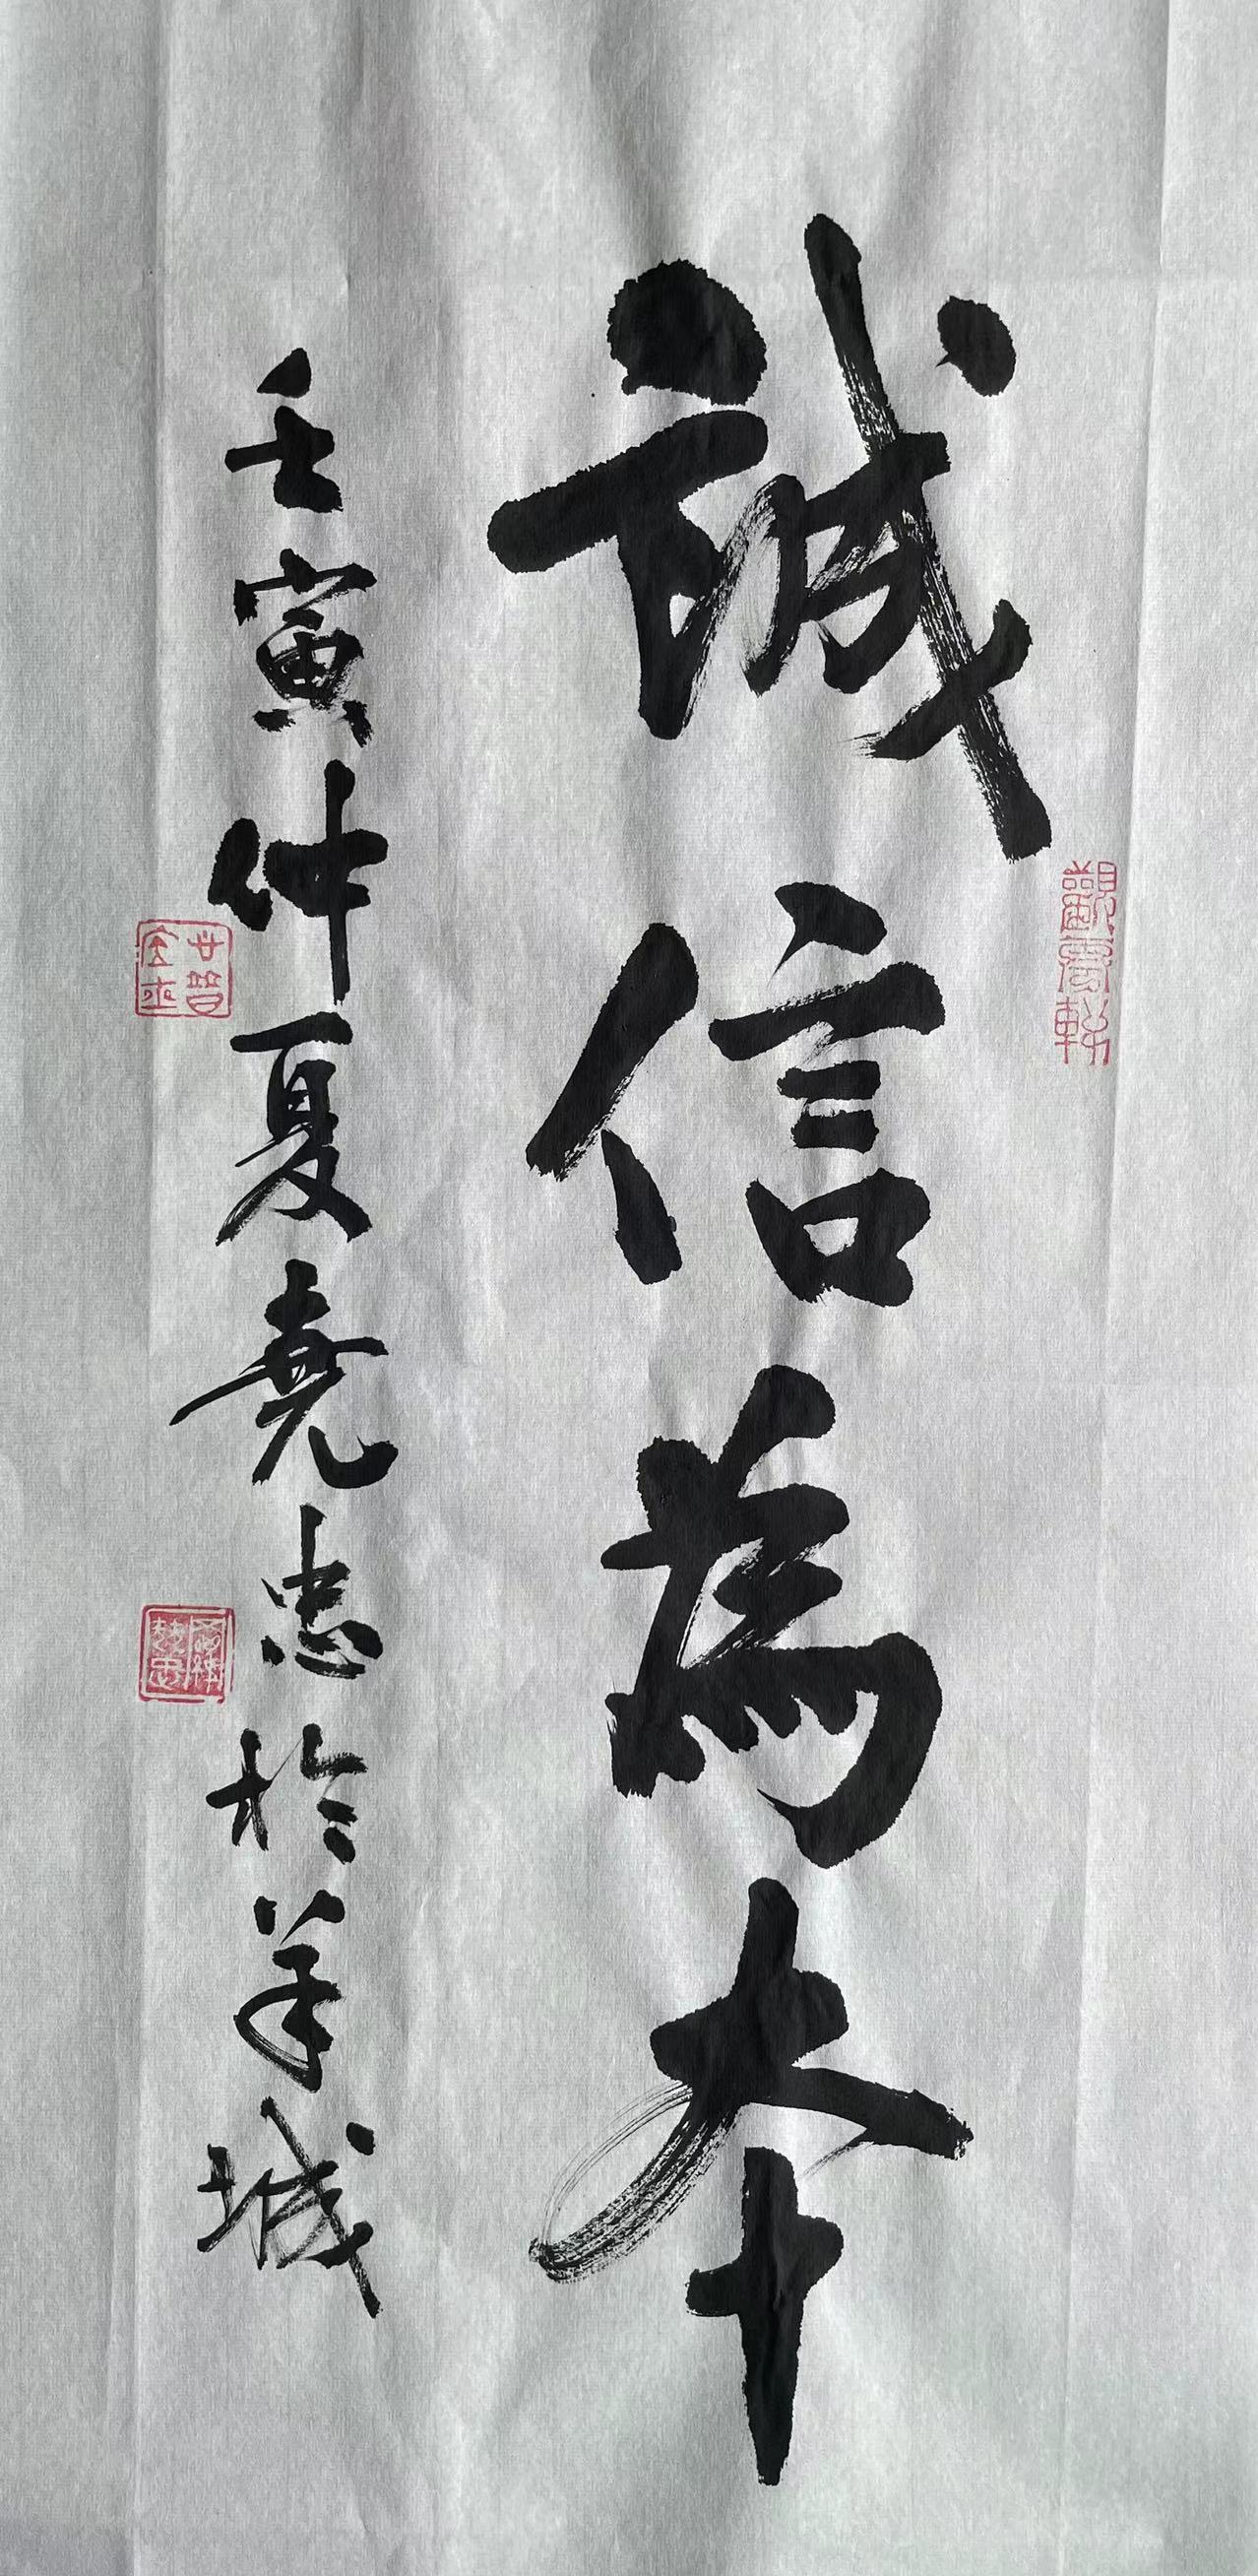 誠信為本
壬寅仲夏堯忠於羊城
觀雲軒